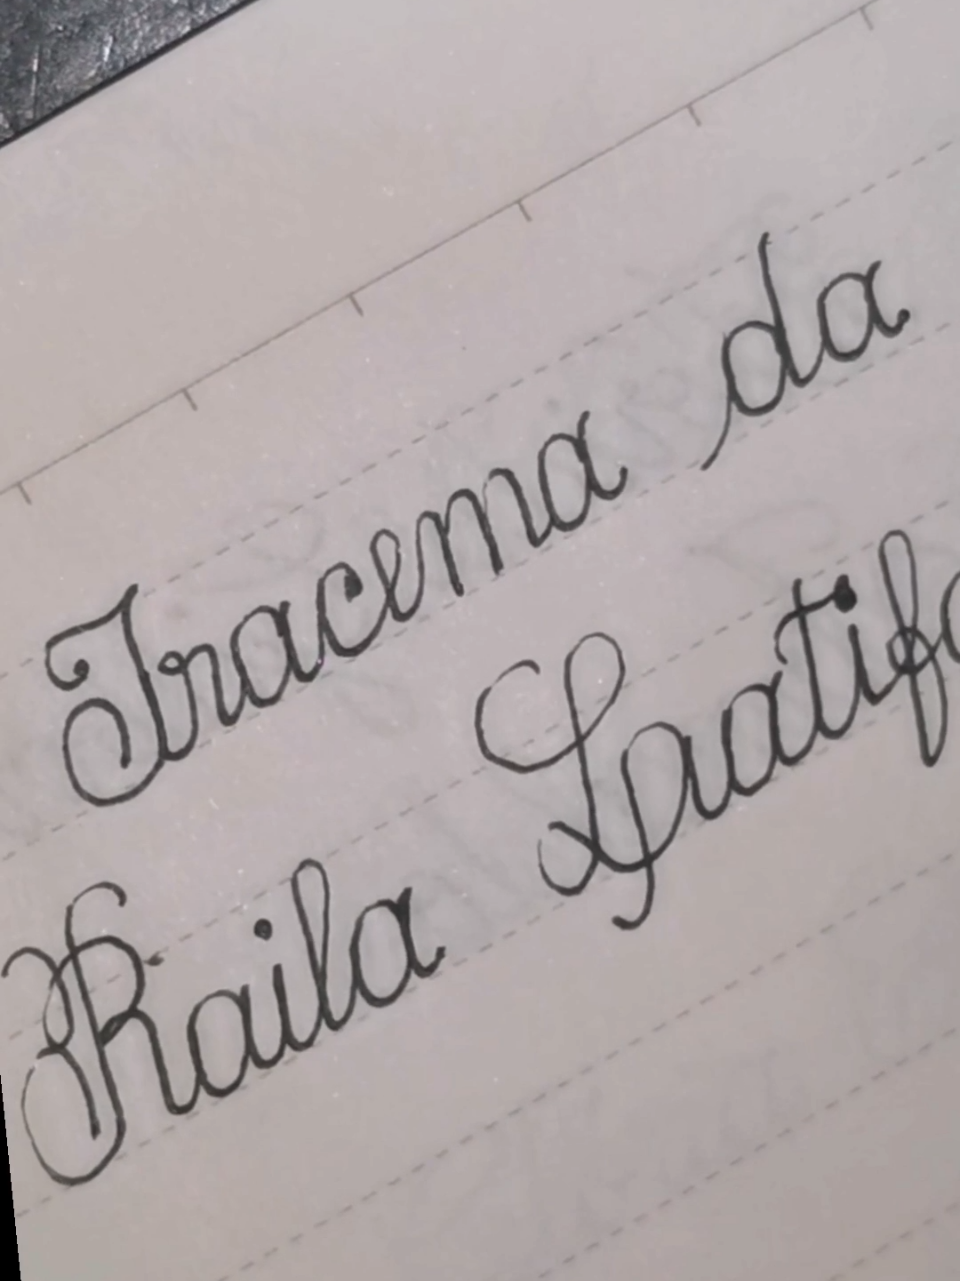 Iracema da
Raila Laatifa